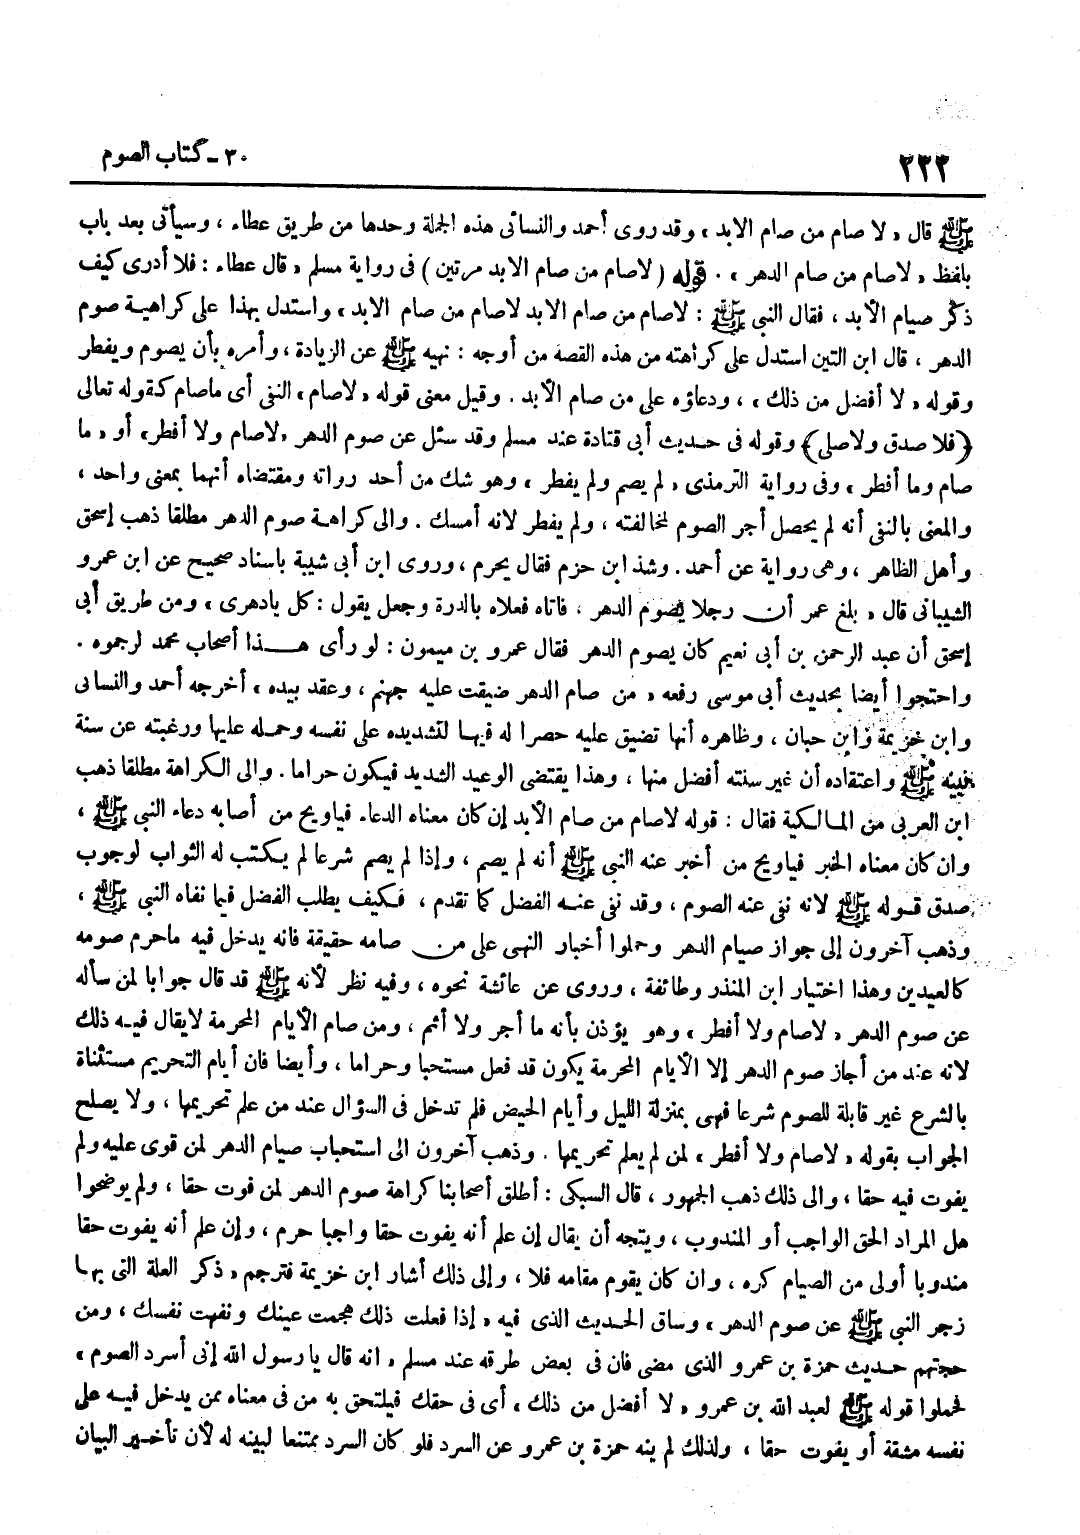 ٣٠ - كتاب الصوم
٢٢٢
ﷺ قال « لا صام من صام الابد » وقد روى أحمد والنسائى هذه الجملة وحدها من طريق عطاء ، وسيأتى بعد باب
بلفظ « لاصام من صام الدهر » . قوله ( لاصام من صام الابد مرتين ) فى رواية مسلم « قال عطاء : فلا أدرى كيف
ذكر صيام الأبد ، فقال النبى ﷺ : لاصام من صام الابد لاصام من صام الابد » واستدل بهذا على كراهية صوم
الدهر ، قال ابن التين استدل على كراهته من هذه القصة من أوجه : نهيه ﷺ عن الزيادة ، وأمره بأن يصوم ويفطر
وقوله « لا أفضل من ذلك » ، ودعاؤه على من صام الأبد . وقيل معنى قوله « لاصام » النفى أى ماصام كقوله تعالى
﴿فلا صدق ولاصلى﴾ وقوله فى حديث أبى قتادة عند مسلم وقد سئل عن صوم الدهر «لاصام ولا أفطر» أو « ما
صام وما أفطر » وفى رواية الترمذى « لم يصم ولم يفطر » وهو شك من أحد رواته ومقتضاه أنهما بمعنى واحد ،
والمعنى بالنفى أنه لم يحصل أجر الصوم لمخالفته ، ولم يفطر لانه أمسك . والى كراهة صوم الدهر مطلقا ذهب إسحق
وأهل الظاهر ، وهى رواية عن أحمد . وشذ ابن حزم فقال يحرم ، وروى ابن أبى شيبة باسناد صحيح عن ابن عمرو
الشيبانى قال « بلغ عمر أن رجلا يصوم الدهر ، فاتاه فعلاه بالدرة وجعل يقول : كل يادهرى » ومن طريق أبى
إسحق أن عبد الرحمن بن أبى نعيم كان يصوم الدهر فقال عمرو بن ميمون : لو رأى هذا أصحاب محمد لرجموه .
واحتجوا أيضا بحديث أبى موسى رفعه « من صام الدهر ضيقت عليه جهنم ، وعقد بيده » أخرجه أحمد والنسائى
وابن خزيمة وابن حبان ، وظاهره أنها تضيق عليه حصرا له فيها لتشديده على نفسه وحمله عليها ورغبته عن سنة
نبيه ﷺ واعتقاده أن غير سنته أفضل منها ، وهذا يقتضى الوعيد الشديد فيكون حراما . والى الكراهة مطلقا ذهب
ابن العربى من المالكية فقال : قوله لاصام من صام الأبد إن كان معناه الدعاء فياويح من أصابه دعاء النبى ﷺ ،
وان كان معناه الخبر فياويح من أخبر عنه النبى ﷺ أنه لم يصم ، وإذا لم يصم شرعا لم يكتب له الثواب لوجوب
صدق قوله ﷺ لانه نفى عنه الصوم ، وقد نفى عنه الفضل كما تقدم ، فكيف يطلب الفضل فيما نفاه النبى ﷺ ،
وذهب آخرون إلى جواز صيام الدهر وحملوا أخبار النهى على من صامه حقيقة فانه يدخل فيه ماحرم صومه
كالعيدين وهذا اختيار ابن المنذر وطائفة ، وروى عن عائشة نحوه ، وفيه نظر لأنه ﷺ قد قال جوابا لمن سأله
عن صوم الدهر « لاصام ولا أفطر » وهو يؤذن بأنه ما أجر ولا أثم ، ومن صام الأيام المحرمة لايقال فيه ذلك
لانه عند من أجاز صوم الدهر إلا الأيام المحرمة يكون قد فعل مستحبا وحراما ، وأيضا فان أيام التحريم مستثناة
بالشرع غير قابلة للصوم شرعا فهى بمنزلة الليل وأيام الحيض فلم تدخل فى السؤال عند من علم تحريمها ، ولا يصلح
الجواب بقوله « لاصام ولا أفطر » لمن لم يعلم تحريمها . وذهب آخرون الى استحباب صيام الدهر لمن قوى عليه ولم
يفوت فيه حقا ، والى ذلك ذهب الجمهور ، قال السبكى : أطلق أصحابنا كراهة صوم الدهر لمن فوت حقا ، ولم يوضحوا
هل المراد الحق الواجب أو المندوب ، ويتجه أن يقال إن علم أنه يفوت حقا واجبا حرم ، وإن علم أنه يفوت حقا
مندوبا أولى من الصيام كره ، وان كان يقوم مقامه فلا ، وإلى ذلك أشار ابن خزيمة فترجم « ذكر العلة التى بها
زجر النبى ﷺ عن صوم الدهر » وساق الحديث الذى فيه « إذا فعلت ذلك هجمت عينك ونفهت نفسك ، ومن
حجتهم حديث حمزة بن عمرو الذى مضى فان فى بعض طرقه عند مسلم « انه قال يا رسول الله إنى أسرد الصوم »
فحملوا قوله ﷺ لعبد الله بن عمرو « لا أفضل من ذلك » أى فى حقك فيلتحق به من فى معناه ممن يدخل فيه على
نفسه مشقة أو يفوت حقا ، ولذلك لم ينه حمزة بن عمرو عن السرد فلو كان السرد ممتنعا لبينه له لأن تأخير البيان